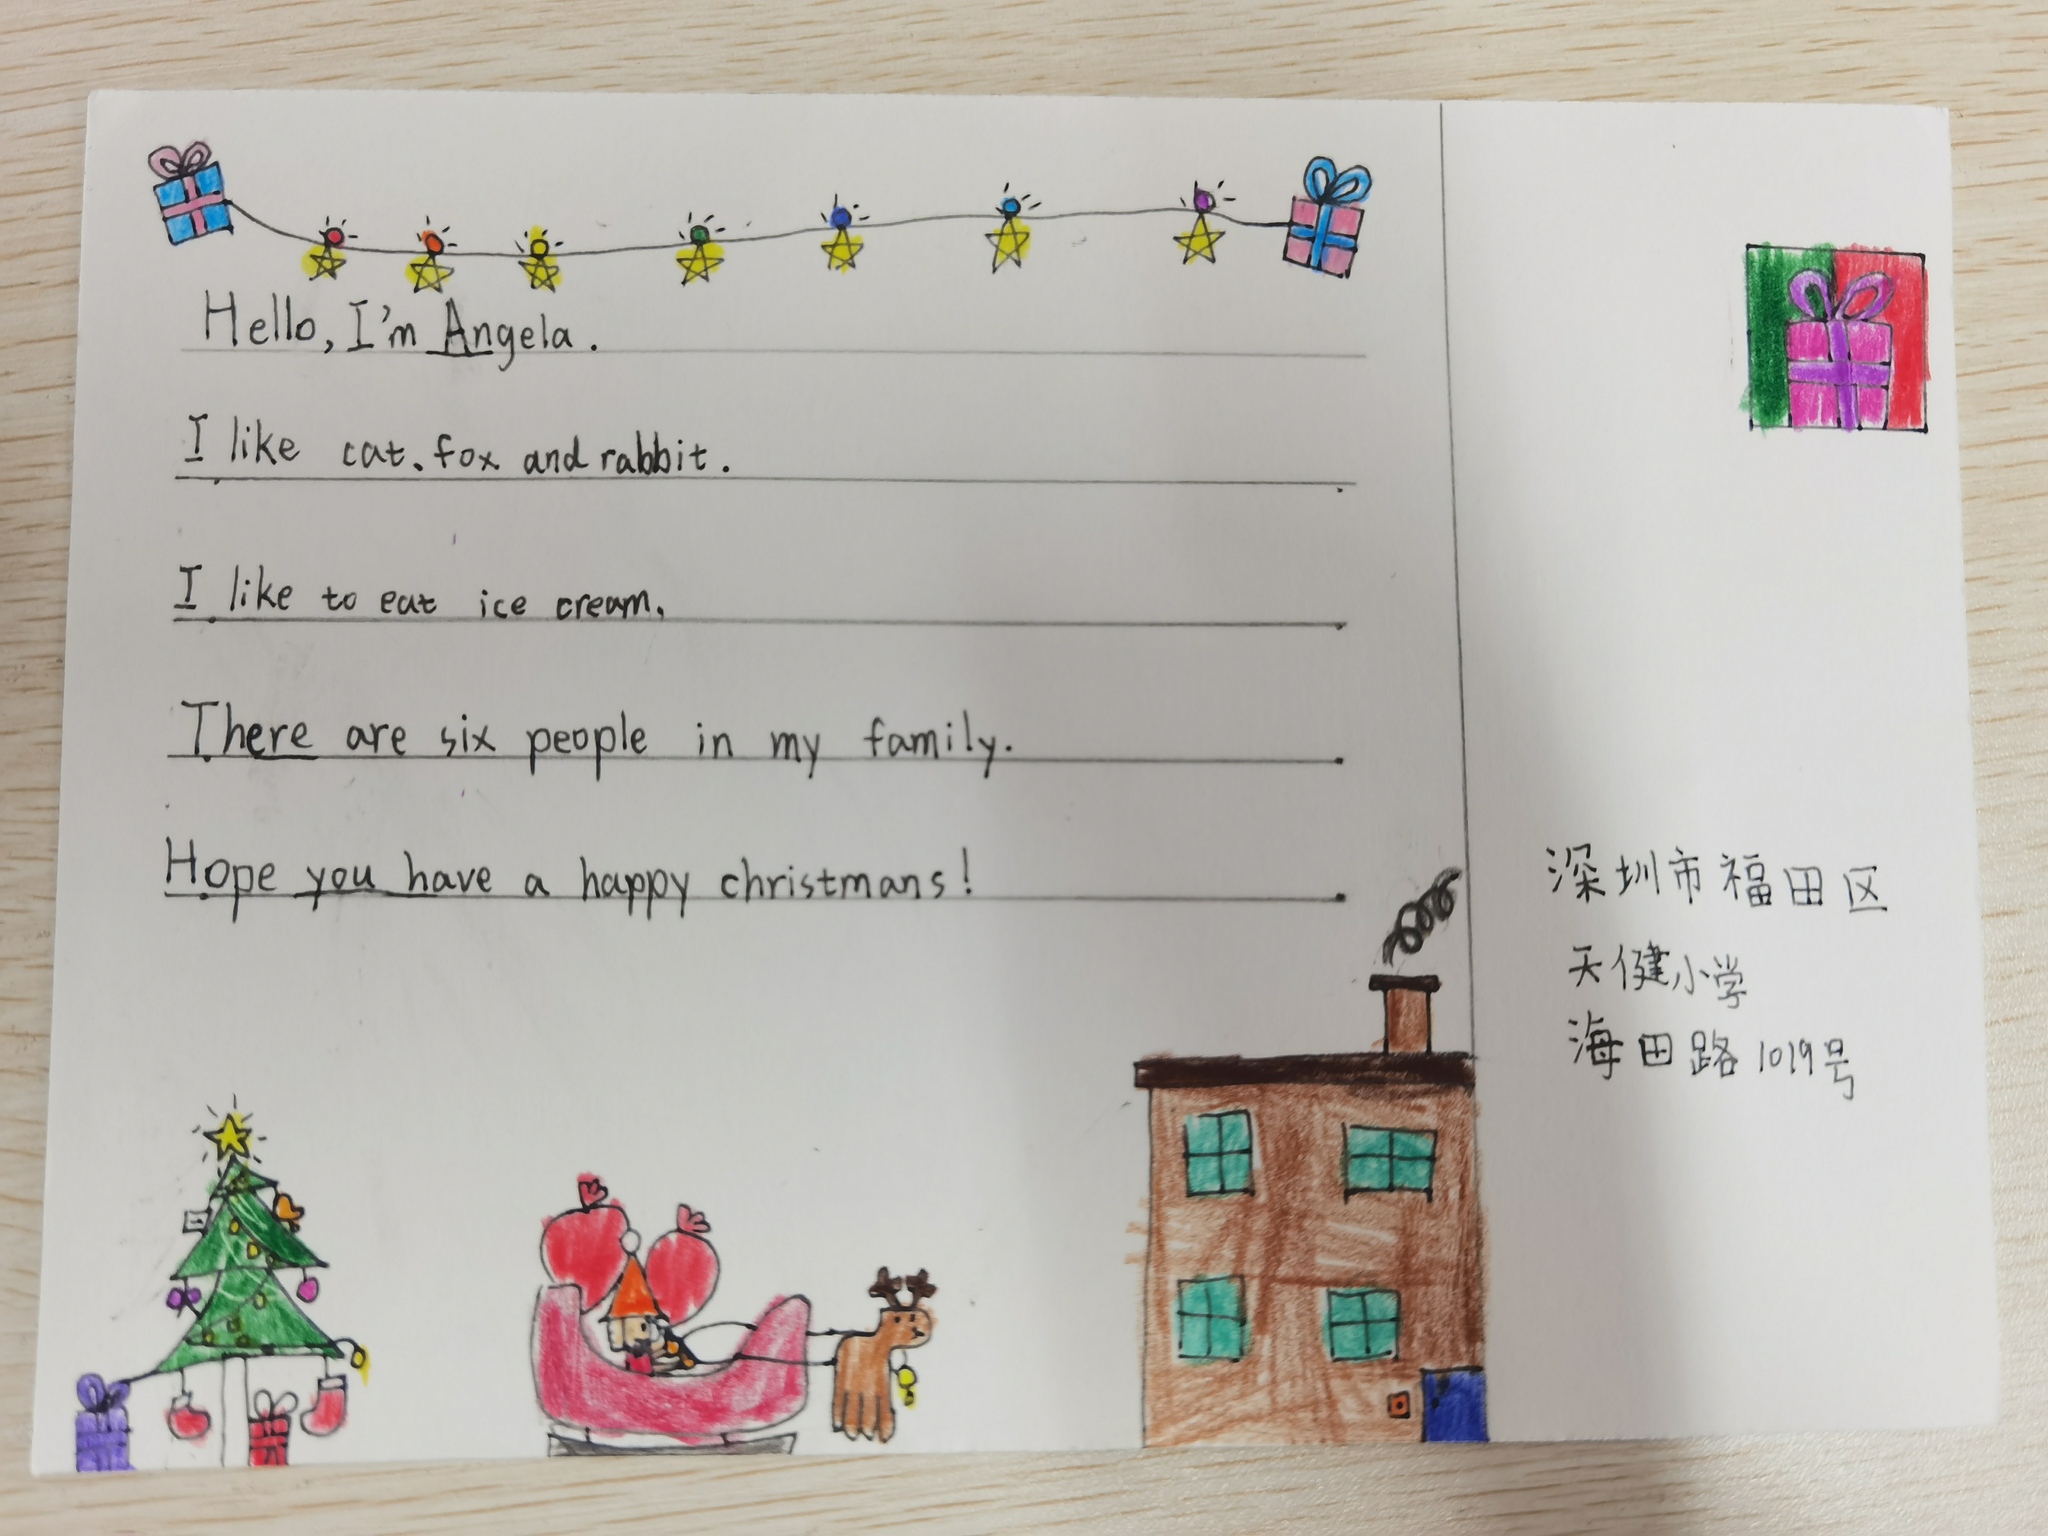 Hello, I'm Angela.
I like cat. fox and rabbit.
I like to eat ice cream.
There are six people in my family.
Hope you have a happy christmans!
深圳市福田区
天健小学
海田路1019号